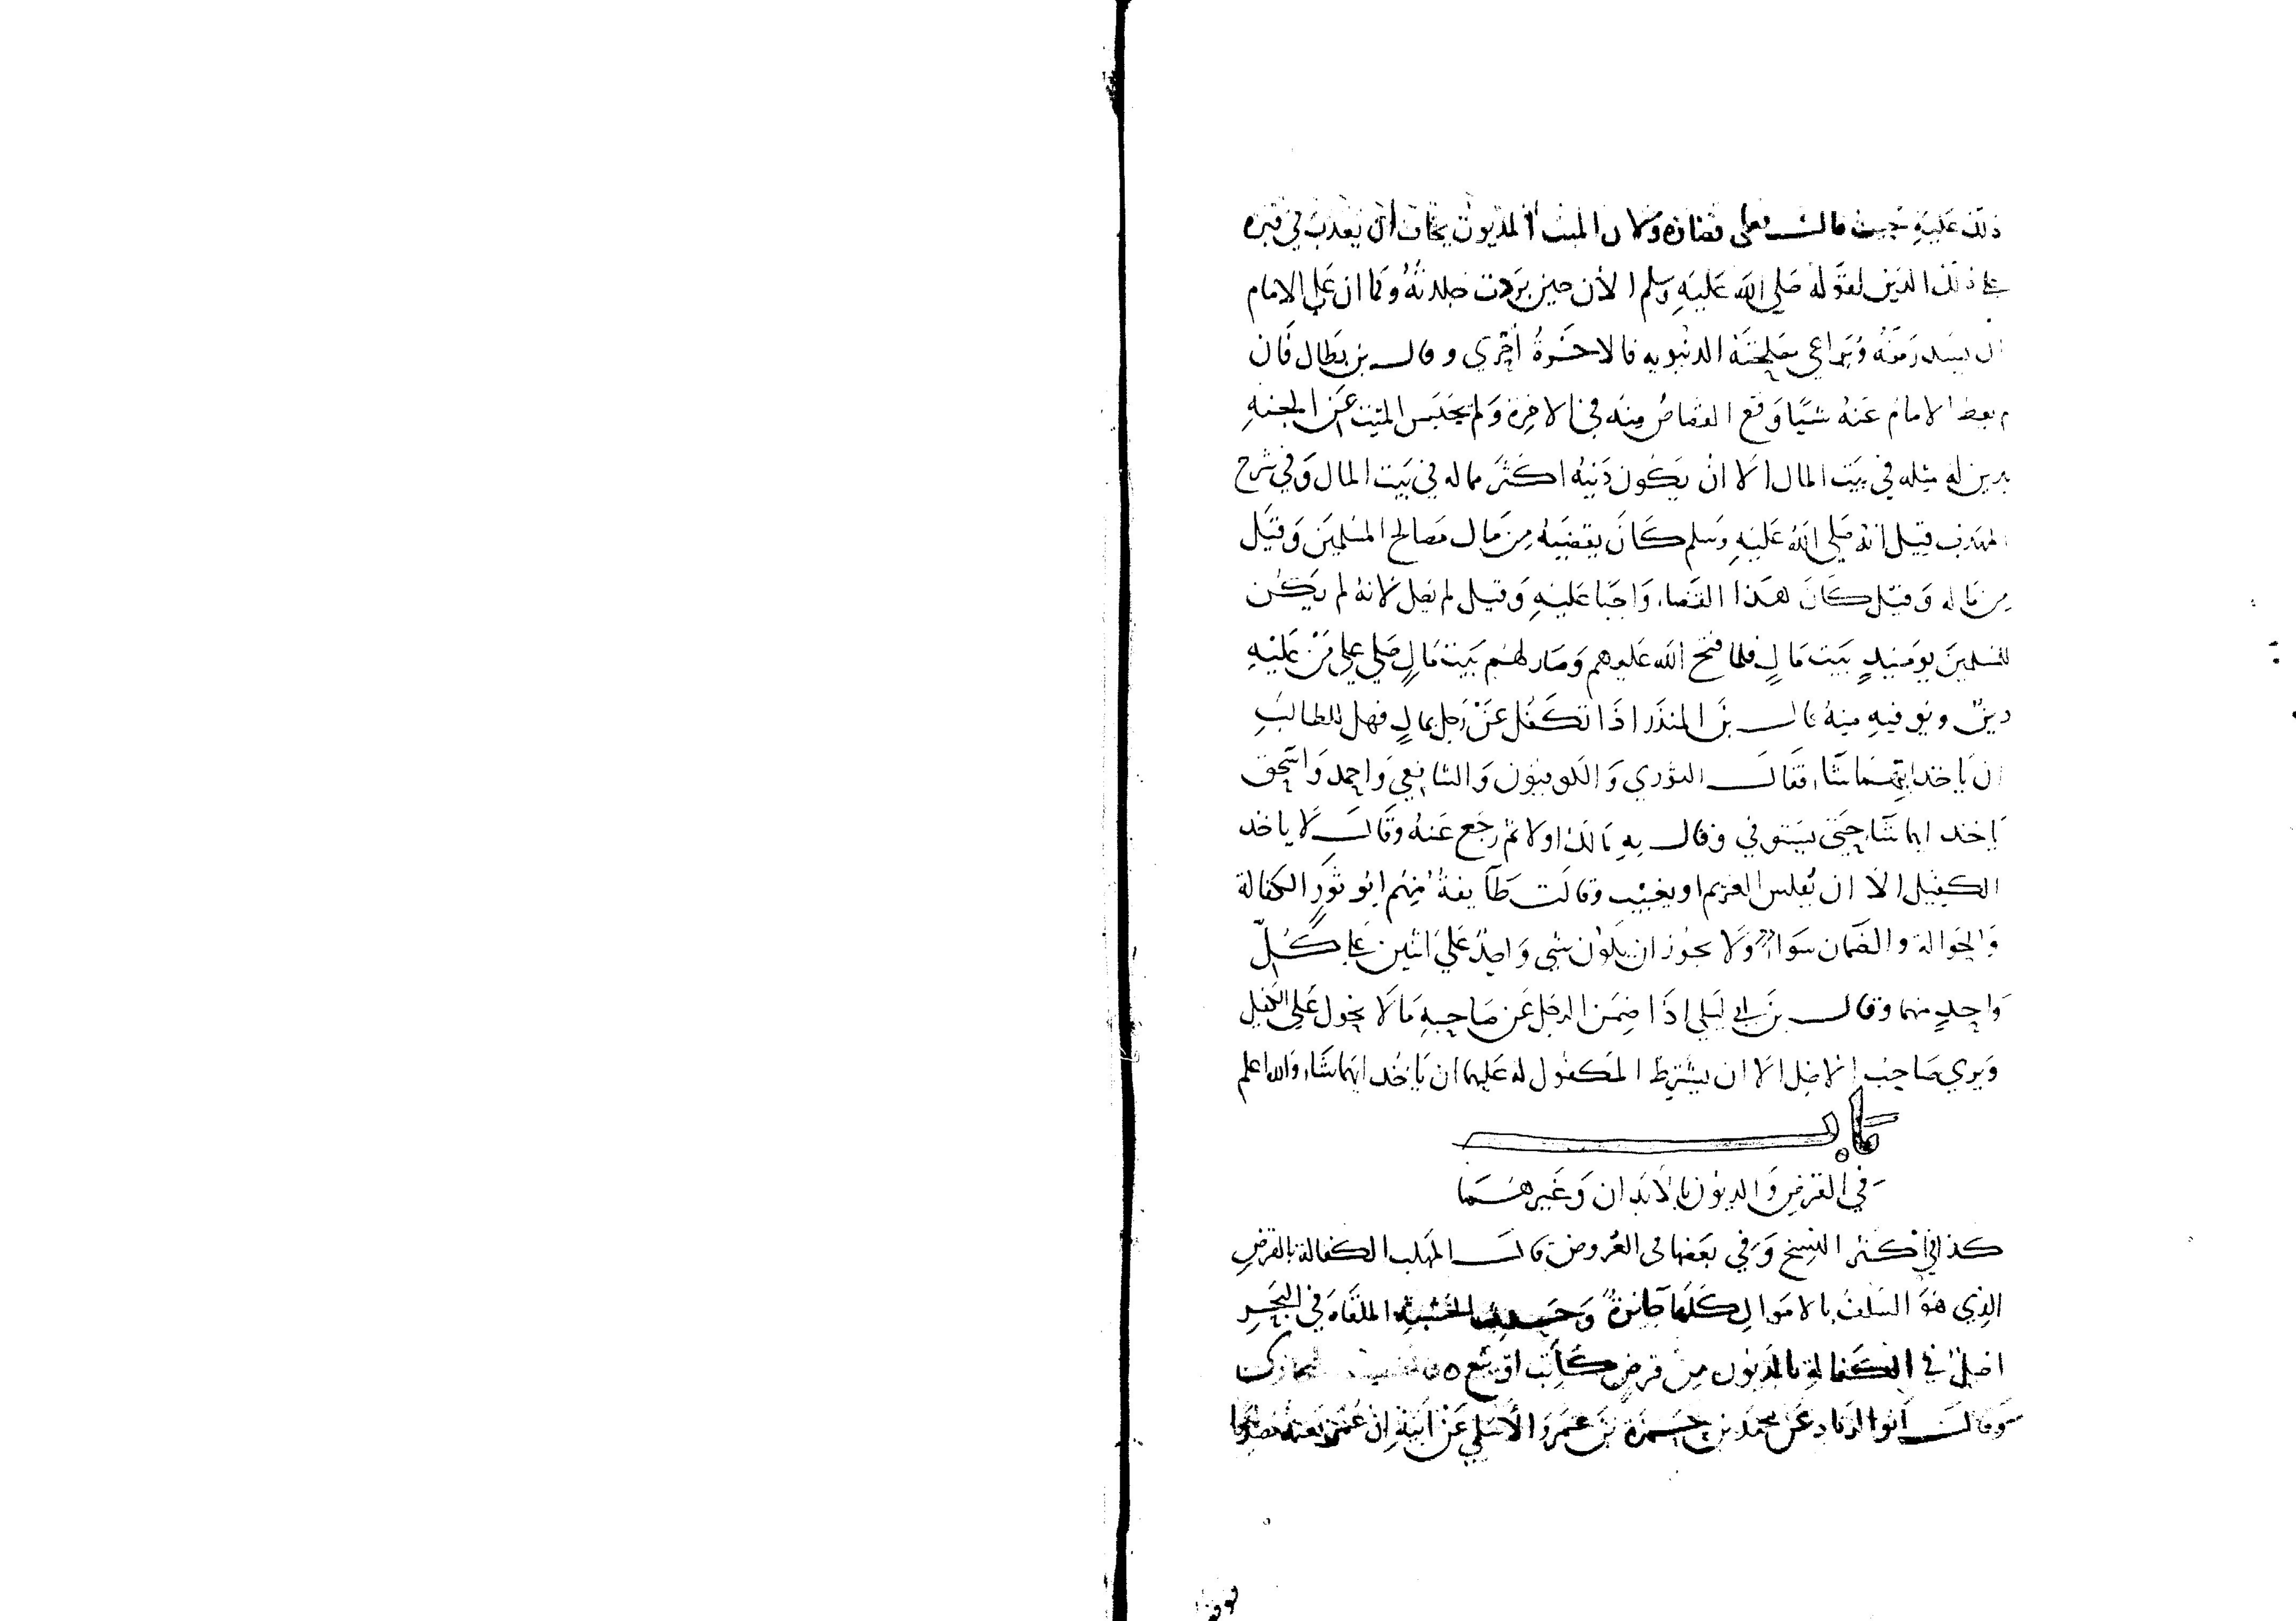 ذلك عليه حيث قال فعلى قضاؤه ولان الميت المديون يخاف ان يعذب في قبره
على ذلك الدين لقوله صلى الله عليه وسلم الان حين بردت جلدته وكما ان على الامام
ان يسد رمقه ويراعي مصلحته الدنيويه فالاخرة احرى وقال بن بطال فان
لم يعط الامام عنه شيًا وقع القصاص منه في الاخرة ولم يحتبس الميت عن الجنه
بدين له مثله في بيت المال الا ان يكون دينه اكثر مما له في بيت المال وفي شرح
المهذب قيل انه صلى الله عليه وسلم كان يقضيه من مال مصالح المسلمين وقيل
من ماله وقيل كان هذا القضاء واجبا عليه وقيل لم يصل لانه لم يكن
للمسلمين يوميذٍ بيت مالٍ فلما فتح الله عليهم وصار لهم بيت مالٍ صلى على من عليه
دين ويوفيه منه قال بن المنذر اذا تكفل عن رجل بمالٍ فهل للطالب
ان ياخذ ايهما شاء فقال الثوري والكوفيون والشافعي واحمد واسحق
ياخذ ايهما شاء حتى يستوفي وقال به مالك اولا ثم رجع عنه وقال لا ياخذ
الكفيل الا ان يفلس الغريم او يغيب وقالت طآيفة منهم ابو ثور الكفالة
والحوالة والضمان سواء ولا يجوز ان يكون شي واحد على اثنين على كل
واحدٍ منهما وقال بن ابي ليلى اذا ضمن الرجل عن صاحبه مالا يحول على الكفيل
وبري صاحب الاصل الا ان يشترط المكفول له عليهما ان ياخذ ايهما شاء والله اعلم
باب
في القرض والديون بالابدان وغيرهما
كذا في اكثر النسخ وفي بعضها في العروض قال المهلب الكفالة بالقرض
الذي هو السلف بالاموال كلها جائزة وحديث الخشبة الملقاه في البحر
اصل في الكفالة بالديون من قرض كانت او بيع
وقال ابو الزناد عن محمد بن حمزة بن عمرو الاسلمي عن ابيه ان عمر بعثه مصدقا